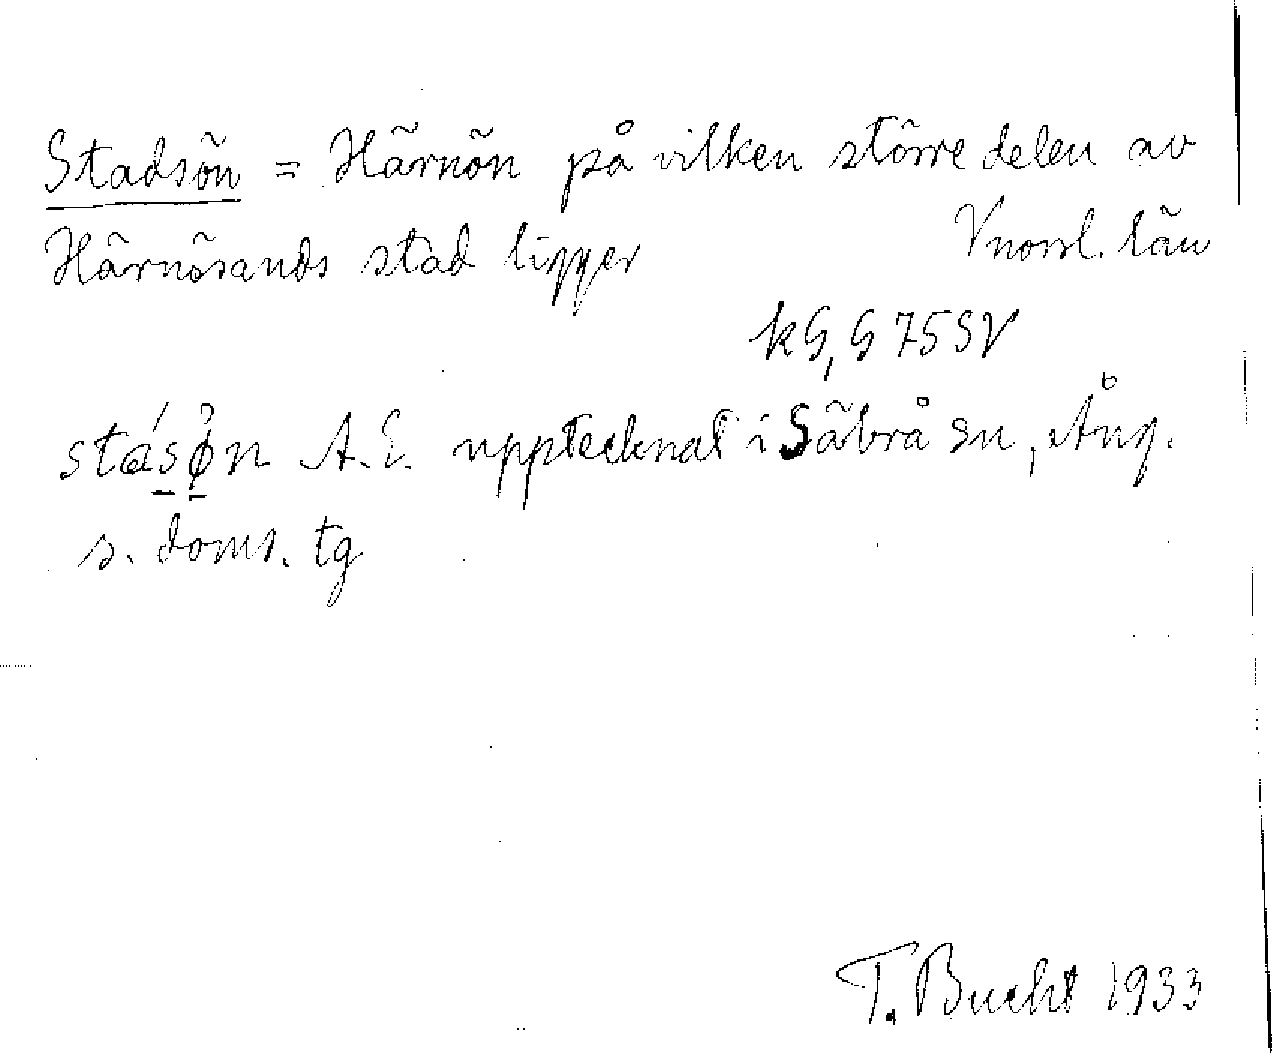 Stadsön = Härnön på vilken större delen av
Härnösands stad ligger Vnorrl. län
kG, G 75 SV
stásøn A.E. upptecknat i Säbrå sn, Ång.
s. doms. tg
T. Bucht 1933